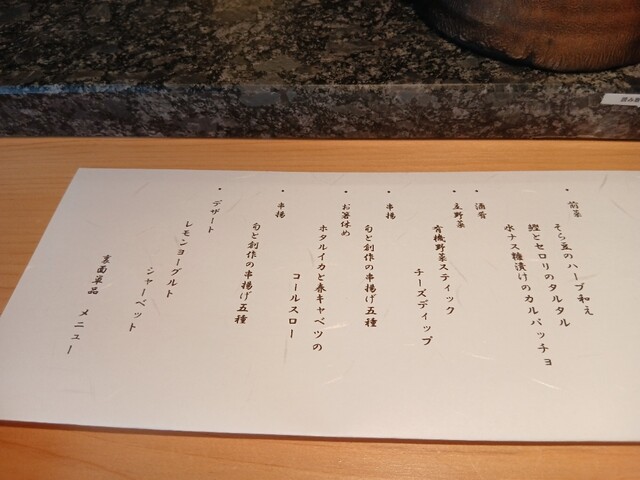 ・前菜
そら豆のハーブ和え
鰹とセロリのタルタル
水ナス糠漬けのカルパッチョ
・酒肴
・立野菜
有機野菜スティック
チーズディップ
・串揚
旬と創作の串揚げ五種
・お箸休め
ホタルイカと春キャベツの
コールスロー
・串揚
旬と創作の串揚げ五種
・デザート
レモンヨーグルト
シャーベット
裏面単品 メニュー